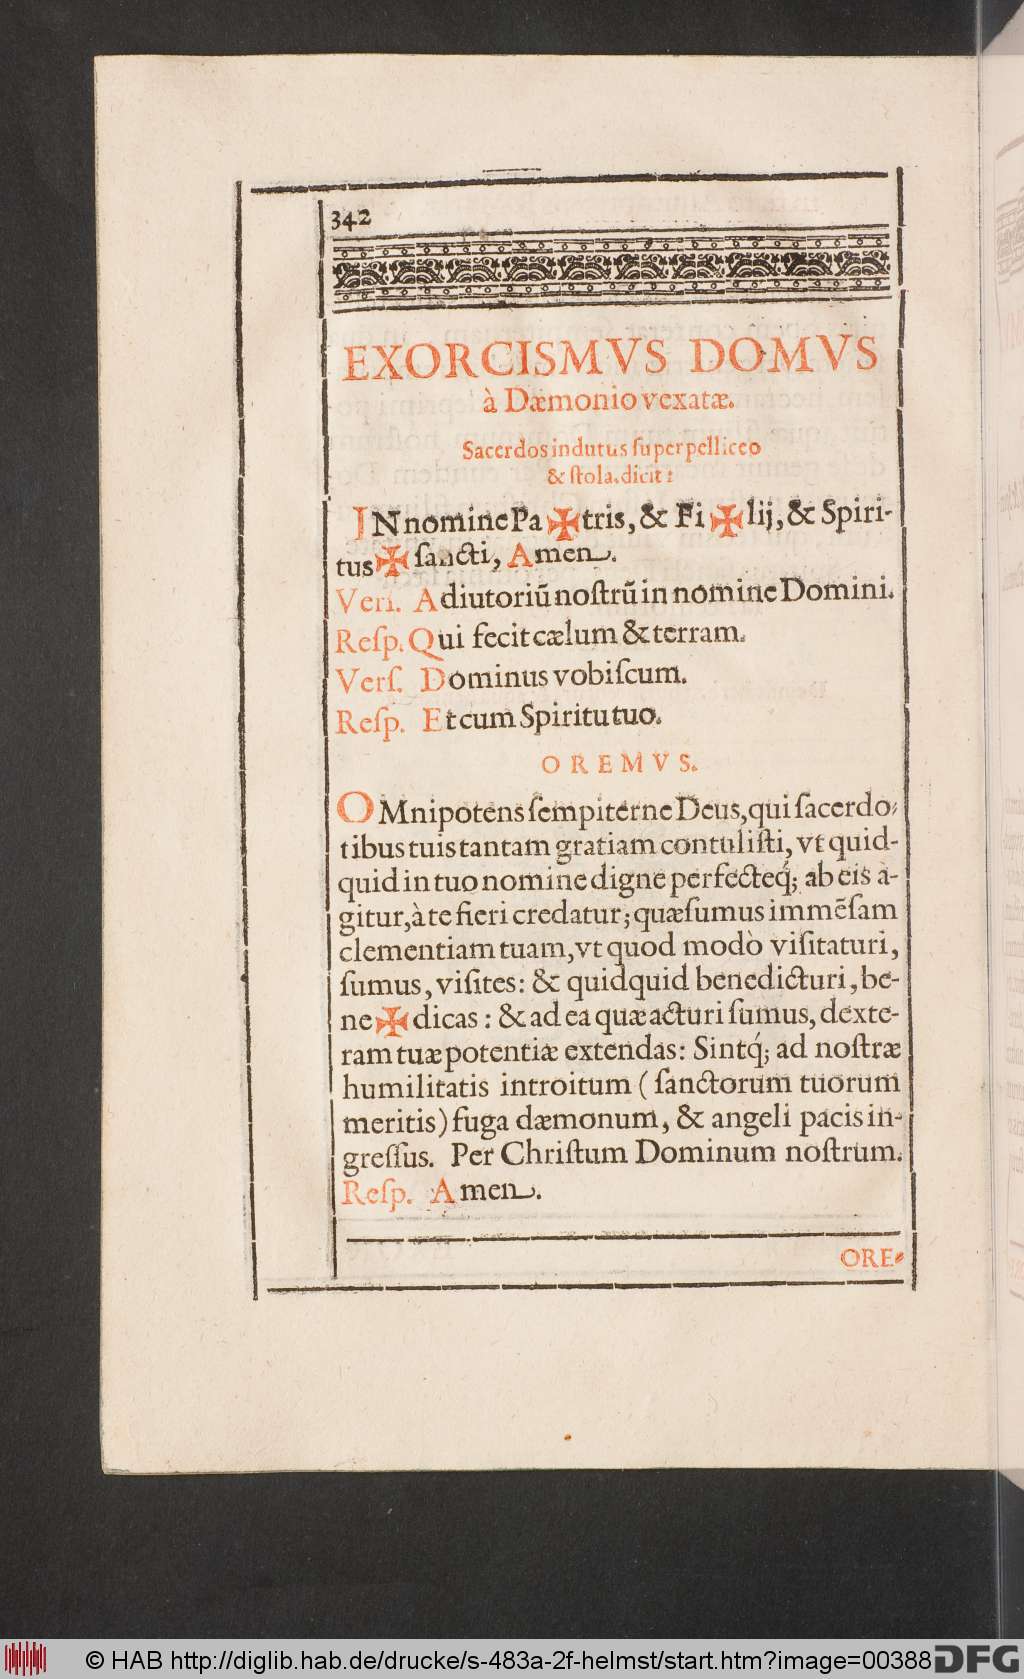 342
EXORCISMVS DOMVS
à Dæmonio vexatæ.
Sacerdos indutus ſuperpelliceo
& ſtola, dicit:
IN nomine Pa ✠ tris, & Fi ✠ lij, & Spiri-
tus ✠ ſancti, Amen.
Verſ. Adiutoriū noſtrū in nomine Domini.
Reſp. Qui fecit cælum & terram.
Verſ. Dominus vobiſcum.
Reſp. Et cum Spiritu tuo.
OREMVS.
OMnipotens ſempiterne Deus, qui ſacerdo-
tibus tuis tantam gratiam contuliſti, vt quid-
quid in tuo nomine digne perfecteq́; ab eis a-
gitur, à te fieri credatur; quæſumus immẽſam
clementiam tuam, vt quod modò viſitaturi,
ſumus, viſites: & quidquid benedicturi, be-
ne ✠ dicas: & ad ea quæ acturi ſumus, dexte-
ram tuæ potentiæ extendas: Sintq́; ad noſtræ
humilitatis introitum (ſanctorum tuorum
meritis) fuga dæmonum, & angeli pacis in-
greſſus. Per Chriſtum Dominum noſtrum.
Reſp. Amen.
ORE-
© HAB http://diglib.hab.de/drucke/s-483a-2f-helmst/start.htm?image=00388
DFG